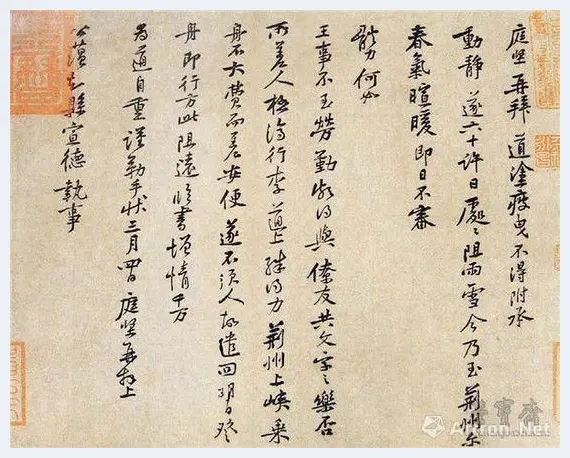 庭堅再拜 道塗疲曳不得附承
動靜遂六十許日處〻阻雨雪今乃至荆州尔
春氣暄暖即日不審
體力何如
王事不至勞勤頗得與僚友共文字之樂否
所差人極濟行李道上殊得力荆州上峽乘
舟不大費而差安便遂不須人故遣回明日登
舟即行方此阻遠臨書增情千万
為道自重謹勒手狀三月四日庭堅再拜上
公藴知縣宣德執事
Artron.Net